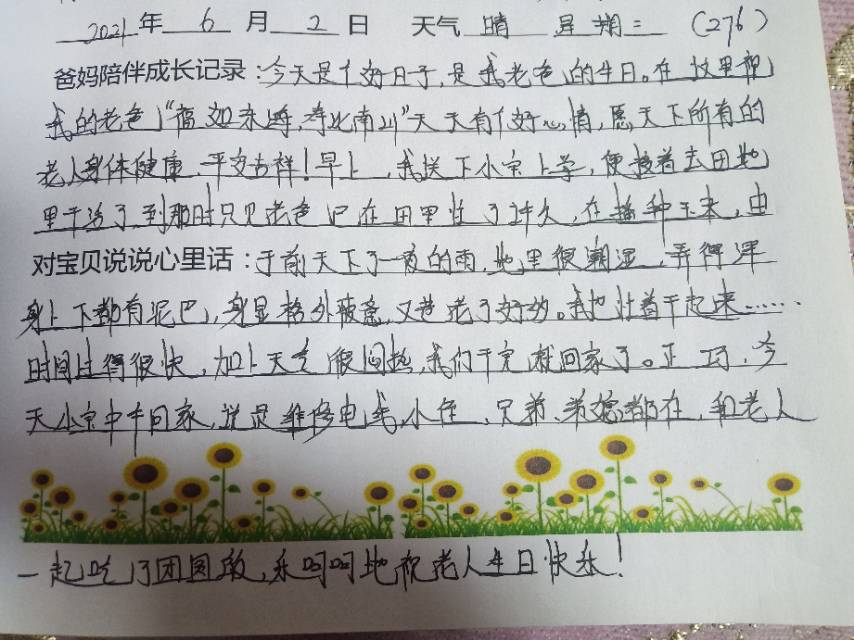 2021年 6 月 2 日 天气 晴 星期三 (276)
爸妈陪伴成长记录:今天是个好日子,是我老爸的生日。在这里祝
我的老爸"福如东海,寿比南山"天天有个好心情,愿天下所有的
老人身体健康,平安吉祥!早上,我送下小宝上学,便接着去田地
里干活了到那时只见老爸已在田里忙了许久,在播种玉米,由
对宝贝说说心里话:于前天下了一夜的雨,地里很潮湿,弄得浑
身上下都有泥巴,身显格外疲惫,又苍老了好多。我也忙着干起来……
时间过得很快,加上天气很闷热,我们干完就回家了。正巧,今
天小宝中午回家,说是维修电线,小侄、兄弟、弟媳都在,和老人
一起吃了团圆饭,乐呵呵地祝老人生日快乐!